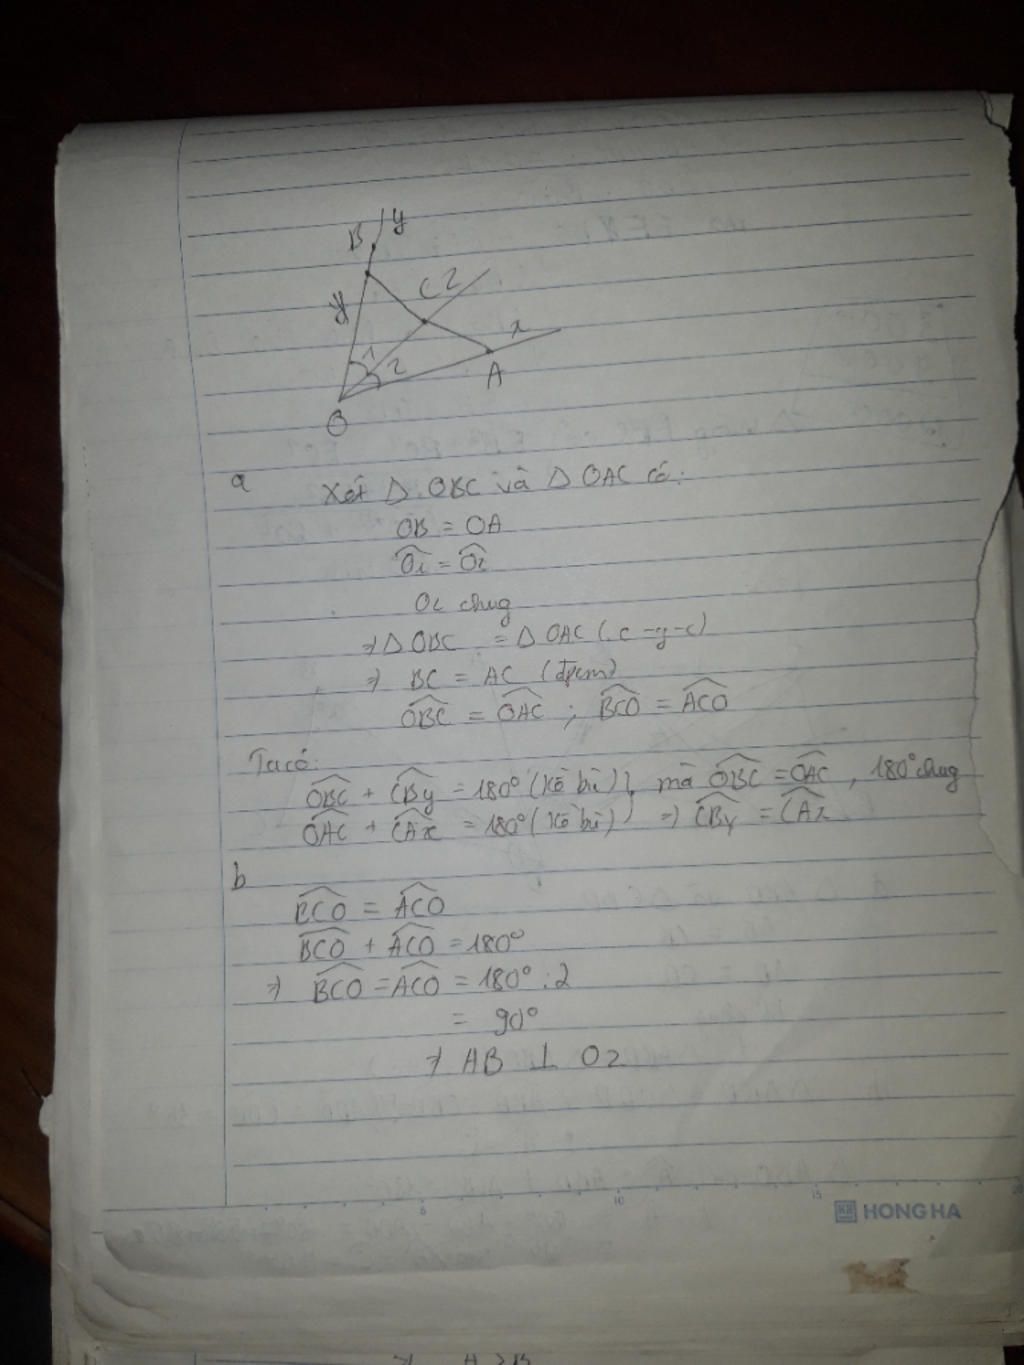 B y
y
C z
1
2
x
A
O
a
Xét Δ OBC và Δ OAC có:
OB = OA
Ô1 = Ô2
OC chung
=> Δ OBC = Δ OAC (c-g-c)
=> BC = AC (đpcm)
OBC = OAC ; BCO = ACO
Ta có:
OBC + CBy = 180° (kề bù) } mà OBC = OAC , 180° chung
OAC + CAx = 180° (kề bù) } => CBy = CAx
b
BCO = ACO
BCO + ACO = 180°
=> BCO = ACO = 180° : 2
= 90°
=> AB ⊥ Oz
5 10 15 20
HONG HA